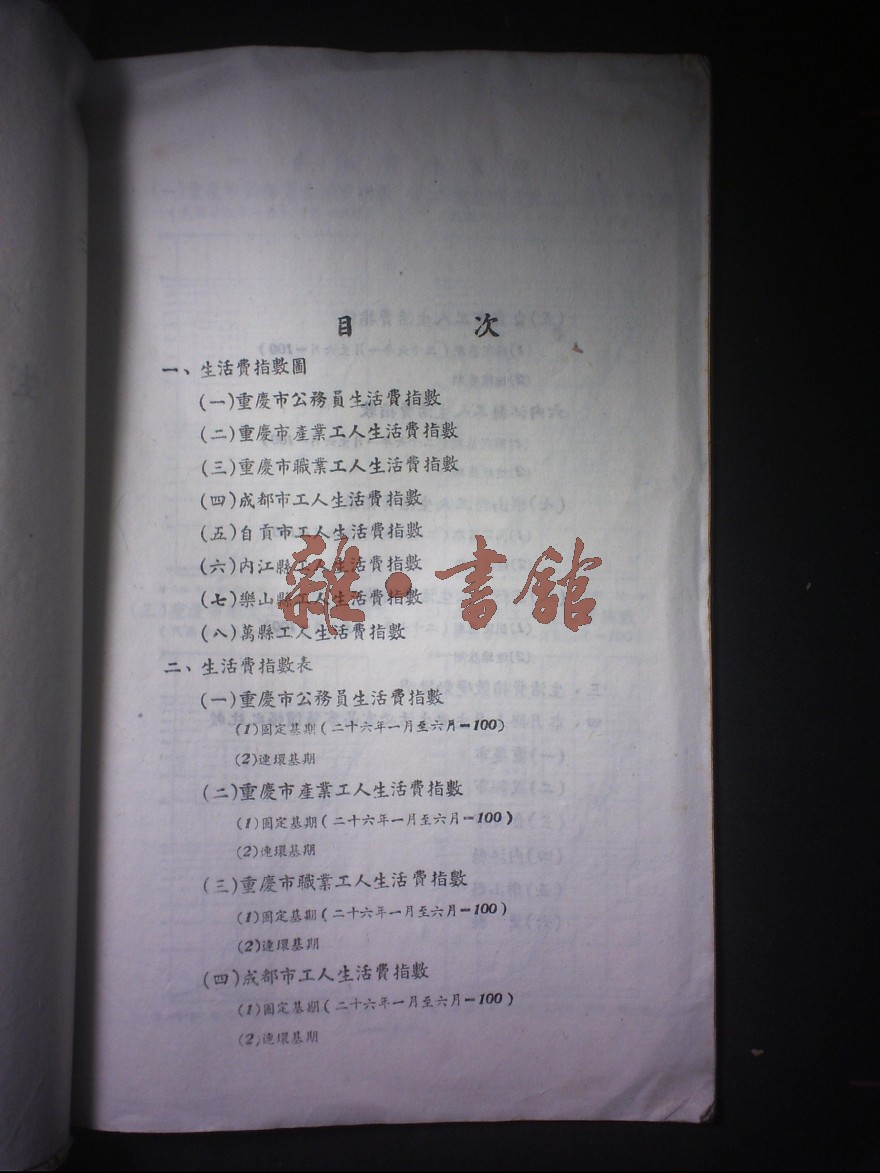 目 次
一、生活費指數圖
(一)重慶市公務員生活費指數
(二)重慶市產業工人生活費指數
(三)重慶市職業工人生活費指數
(四)成都市工人生活費指數
(五)自貢市工人生活費指數
(六)内江縣工人生活費指數
(七)樂山縣工人生活費指數
(八)萬縣工人生活費指數
雜·書館
二、生活費指數表
(一)重慶市公務員生活費指數
(1)固定基期(二十六年一月至六月=100)
(2)連環基期
(二)重慶市產業工人生活費指數
(1)固定基期(二十六年一月至六月=100)
(2)連環基期
(三)重慶市職業工人生活費指數
(1)固定基期(二十六年一月至六月=100)
(2)連環基期
(四)成都市工人生活費指數
(1)固定基期(二十六年一月至六月=100)
(2)連環基期